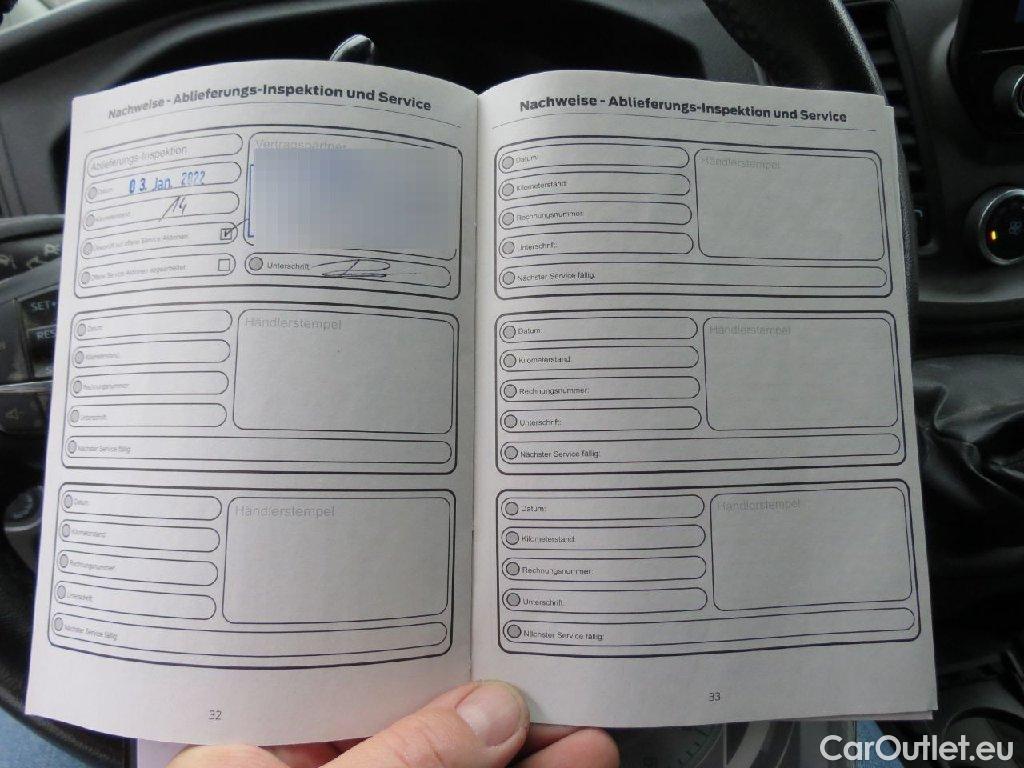 Nachweise - Ablieferungs-Inspektion und Service
Ablieferungs-Inspektion
Vertragspartner
Datum:
03. Jan. 2022
Kilometerstand:
14
Unterschrift:
Datum:
Händlerstempel
Kilometerstand:
Rechnungsnummer:
Unterschrift:
Nächster Service fällig:
Datum:
Händlerstempel
Kilometerstand:
Rechnungsnummer:
Unterschrift:
Nächster Service fällig:
32
Nachweise - Ablieferungs-Inspektion und Service
Datum:
Händlerstempel
Kilometerstand:
Rechnungsnummer:
Unterschrift:
Nächster Service fällig:
Datum:
Händlerstempel
Kilometerstand:
Rechnungsnummer:
Unterschrift:
Nächster Service fällig:
Datum:
Händlerstempel
Kilometerstand:
Rechnungsnummer:
Unterschrift:
Nächster Service fällig:
33
SET+
RES
CarOutlet.eu